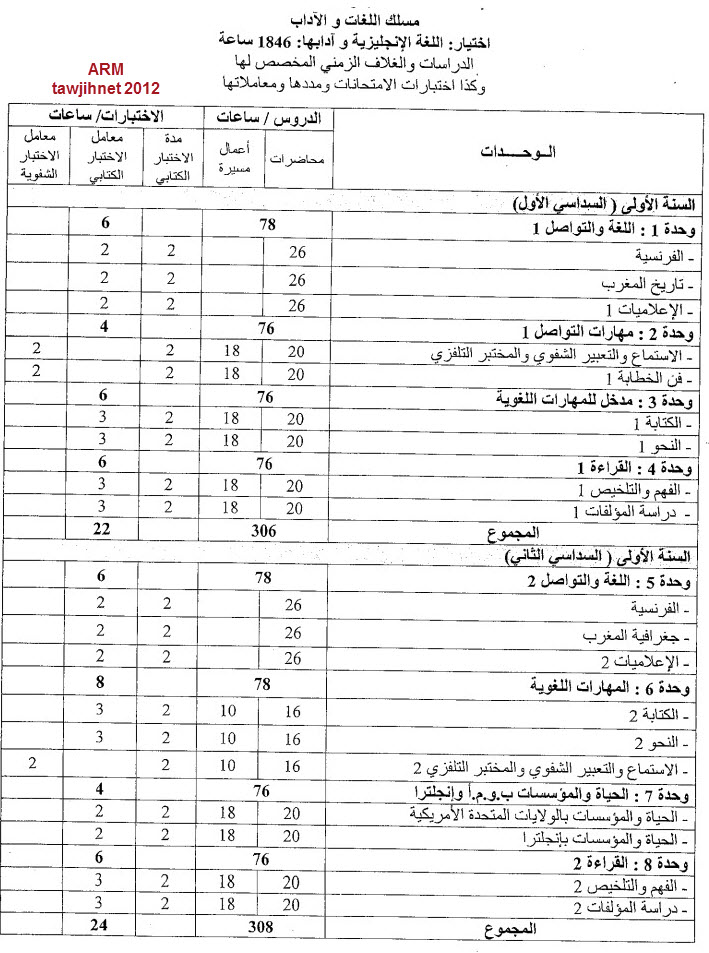 مسلك اللغات و الآداب
اختيار: اللغة الإنجليزية و آدابها: 1846 ساعة
الدراسات والغلاف الزمني المخصص لها
وكذا اختبارات الامتحانات ومددها ومعاملاتها
ARM
tawjihnet 2012
الوحدات | الدروس / ساعات | الاختبارات/ ساعات
محاضرات | أعمال مسيرة | مدة الاختبار الكتابي | معامل الاختبار الكتابي | معامل الاختبار الشفوية
السنة الأولى ( السداسي الأول)
وحدة 1 : اللغة والتواصل 1 78 6
- الفرنسية 26 2 2
- تاريخ المغرب 26 2 2
- الإعلاميات 1 26 2 2
وحدة 2 : مهارات التواصل 1 76 4
- الاستماع والتعبير الشفوي والمختبر التلفزي 20 18 2 2
- فن الخطابة 1 20 18 2 2
وحدة 3 : مدخل للمهارات اللغوية 76 6
- الكتابة 1 20 18 2 3
- النحو 1 20 18 2 3
وحدة 4 : القراءة 1 76 6
- الفهم والتلخيص 1 20 18 2 3
- دراسة المؤلفات 1 20 18 2 3
المجموع 306 22
السنة الأولى ( السداسي الثاني)
وحدة 5 : اللغة والتواصل 2 78 6
- الفرنسية 26 2 2
- جغرافية المغرب 26 2 2
- الإعلاميات 2 26 2 2
وحدة 6 : المهارات اللغوية 78 8
- الكتابة 2 16 10 2 3
- النحو 2 16 10 2 3
- الاستماع والتعبير الشفوي والمختبر التلفزي 2 16 10 2 2
وحدة 7 : الحياة والمؤسسات ب.و.م.أ وإنجلترا 76 4
- الحياة والمؤسسات بالولايات المتحدة الأمريكية 20 18 2 2
- الحياة والمؤسسات بإنجلترا 20 18 2 2
وحدة 8 : القراءة 2 76 6
- الفهم والتلخيص 2 20 18 2 3
- دراسة المؤلفات 2 20 18 2 3
المجموع 308 24